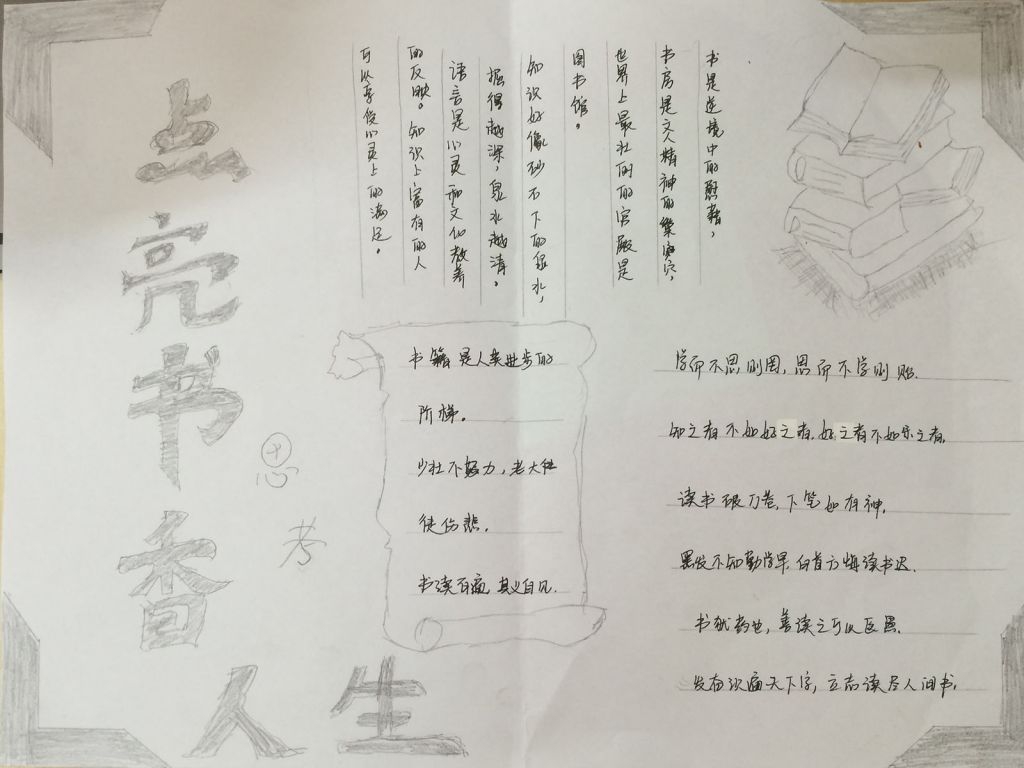 点亮书香
人生
思
考
书是逆境中的慰藉,
书房是文人精神的巢穴,
世界上最壮丽的宫殿是
图书馆。
知识好像砂石下的泉水,
掘得越深,泉水越清。
语言是心灵和文化教养
的反映。知识上富有的人
可以享受心灵上的满足。
书籍是人类进步的
阶梯。
少壮不努力,老大徒
徒伤悲。
书读百遍,其义自见.
学而不思则罔,思而不学则殆.
知之者不如好之者,好之者不如乐之者.
读书破万卷,下笔如有神.
黑发不知勤学早,白首方悔读书迟.
书犹药也,善读之可以医愚.
发奋识遍天下字,立志读尽人间书.